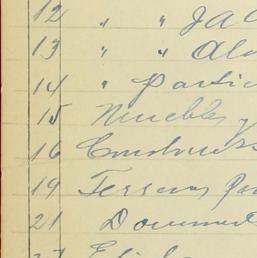 12 " " JAC
13 " " Al
14 " Partic
15 Muebles y
16 Construcc
19 Terrenos par
21 Document